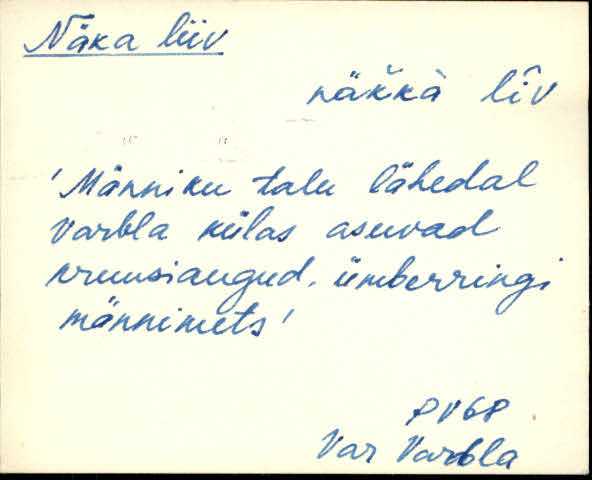 Näka liiv
näk̆kà lîv
'Männiku talu lähedal
Varbla külas asuvad
kruusiaugud, ümberringi
männimets'
PV68
Var Varbla